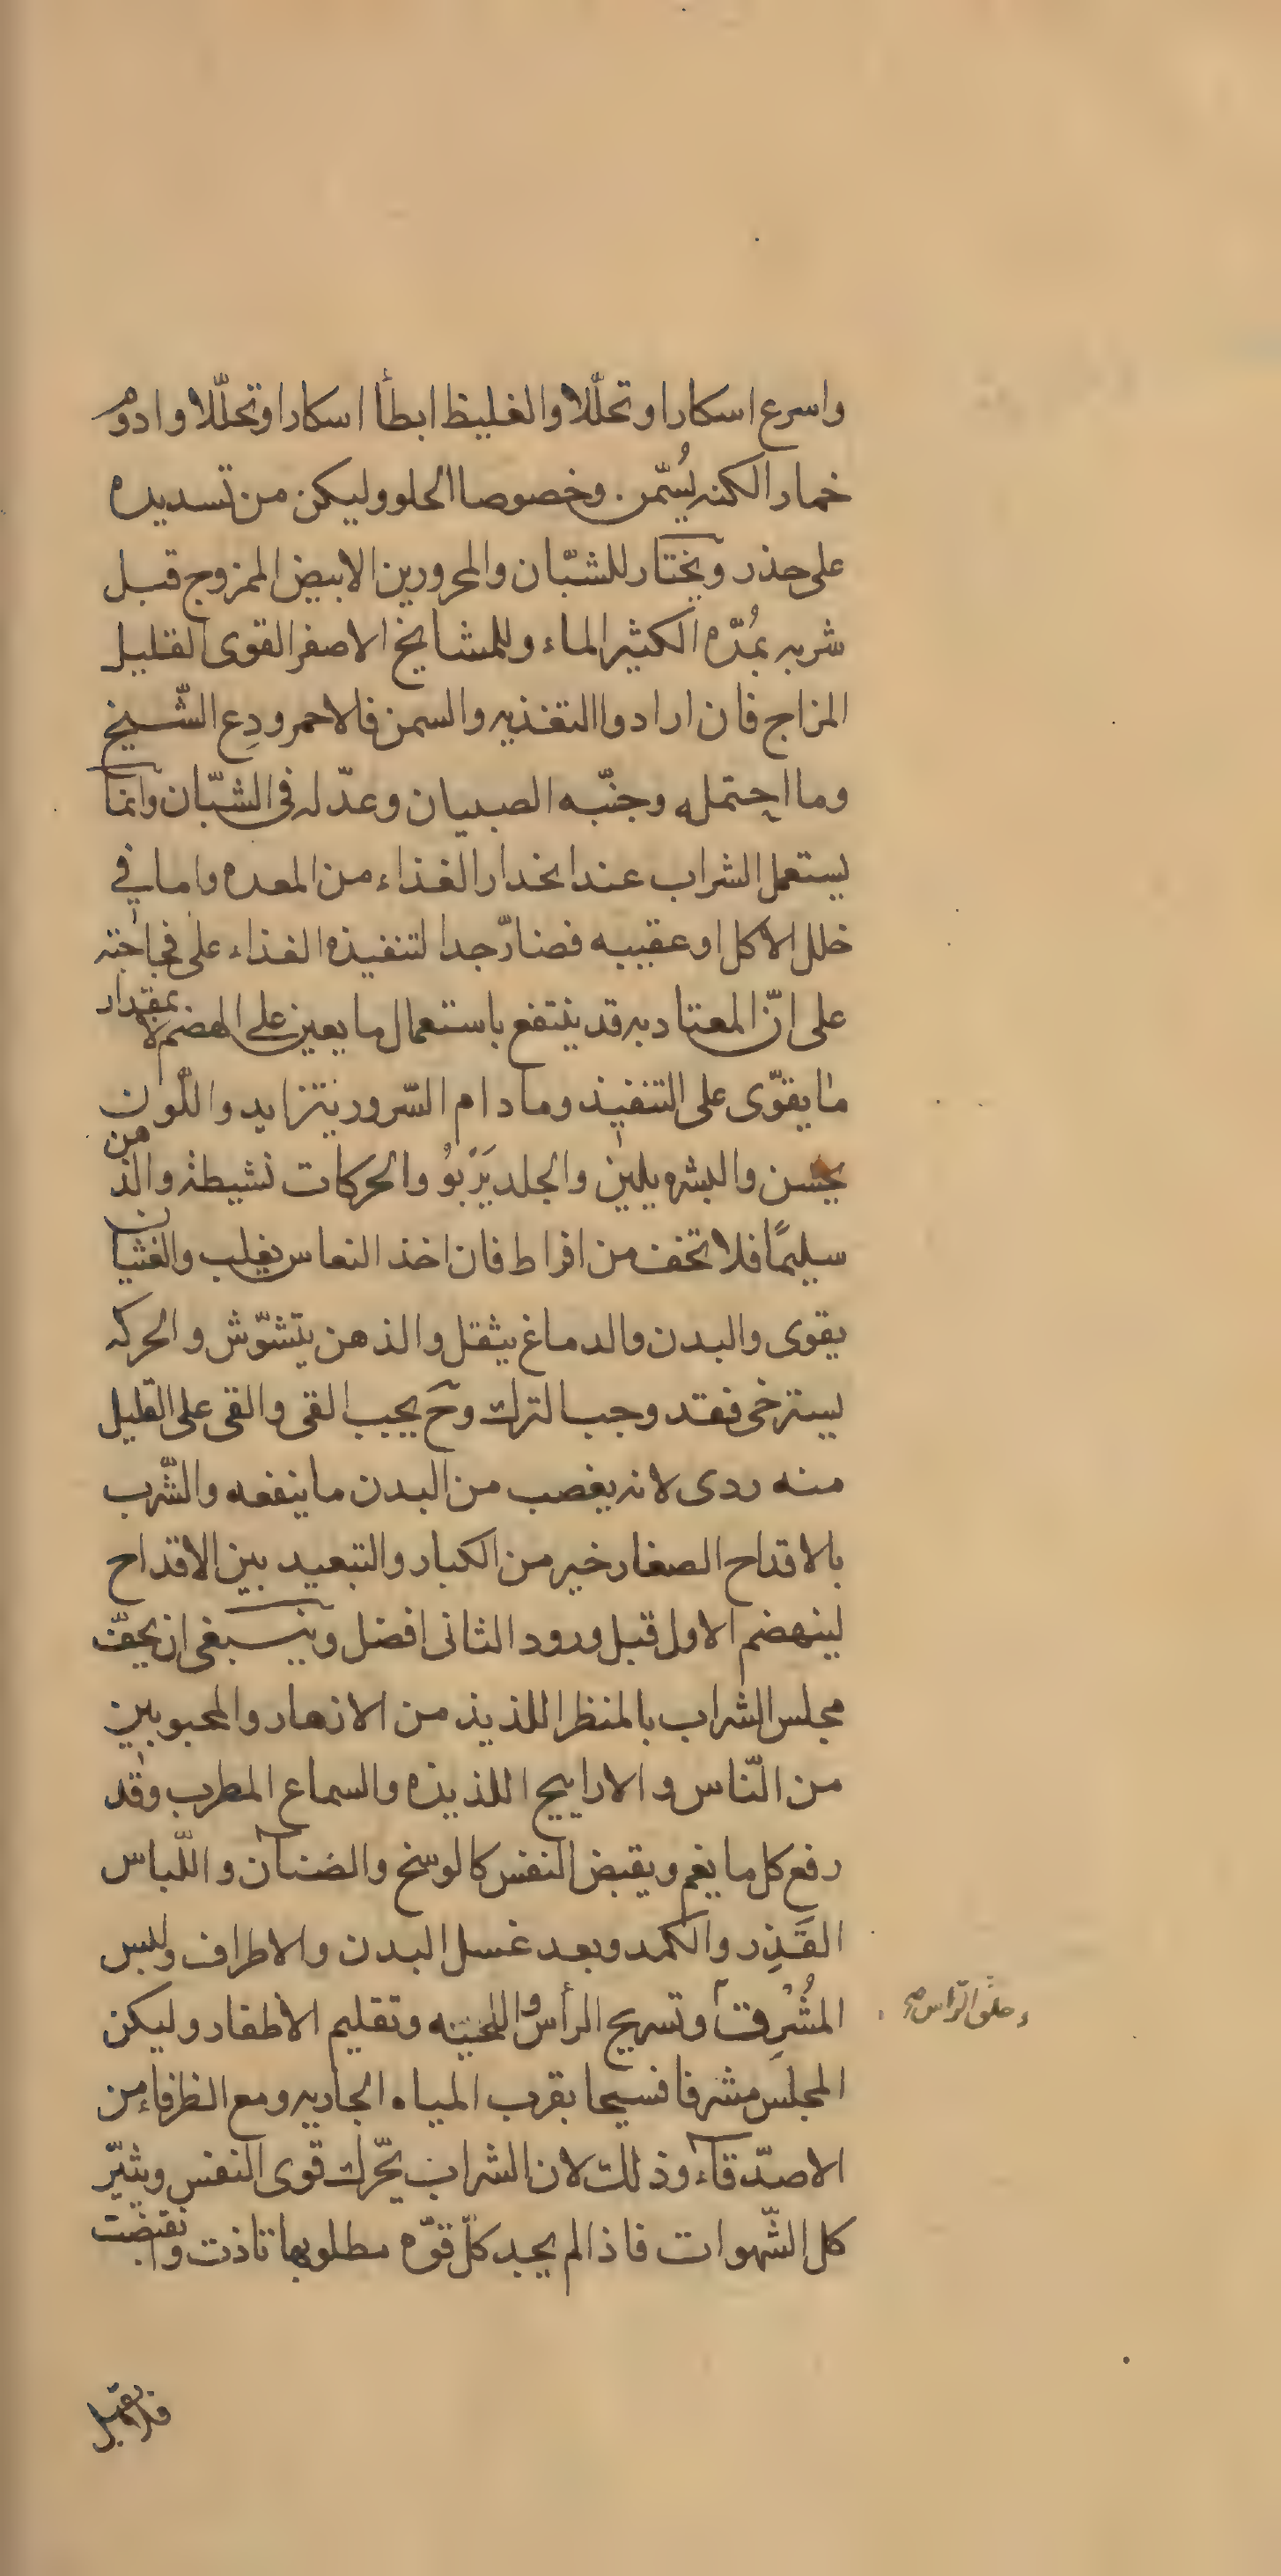 واسرع اسكارا وتحلّلا والغليظ ابطأ اسكارا وتحلّلا وادوم
خمارا لكنه يُسّمن وخصوصا الحلو وليكن من تسديده
على حذر ويختار للشبّان والمحرورين الابيض الممزوج قبل
شربه بمُدّه الكثير الماء وللمشايخ الاصفر القوى القليل
المزاج فان ارادوا التغذيه والسمن فالاحمر ودِع الشّيخ
وما احتمله وجنّبه الصبيان وعدّله فى الشبّان وانما
يستعمل الشراب عند انحدار الغذاء من المعده واما في
خلل الاكل او عقيبه فضارّ جدا لتنفيذه الغذاء على فجاجته
على انّ المعتاد به قد ينتفع باستعمال ما يعين على الهضم لا بمقدار
ما يقوّى على التنفيذ وما دام السّرور يتزايد واللّون
يحسن والبشره يلين والجلد يَرْبوُ والحركات نشيطة والذهن
سليمًا فلا تخف من افراط فان اخذ النعاس يغلب والغثيان
يقوى والبدن والدماغ يثقل والذهن يتشوّش والحركه
يسترخى فقد وجب الترك وحَ يجب القى والقى على القليل
منه ردى لانه يغصب من البدن ما ينفعه والشّرب
بالاقداح الصغار خير من الكبار والتبعيد بين الاقداح
لينهضم الاول قبل ورود الثانى افضل وينبغى ان يحفّ
مجلس الشراب بالمنظر اللذيذ من الازهار والمحبوبين
من النّاس والاراييح اللذيذه والسماع المطرب وقد
رفع كل ما يغم ويقبض النفس كالوسخ والضنان واللّباس
القَذِر والكمد وبعد غسل البدن والاطراف ولبس
المُشْرِقت وتسريح الرأس واللحيته وتقليم الاظفار وليكن
وحلق الرّاس صح
المجلس مشرفا فسيحا بقرب المياه الجاريه ومع الظرفاء من
الاصدّقاء وذلك لان الشراب يحّرك قوى النفس ويثيّر
كل الشّهوات فاذا لم يجد كلّ قوّه مطلوبها تاذت وانقبضت
فلا يقبل